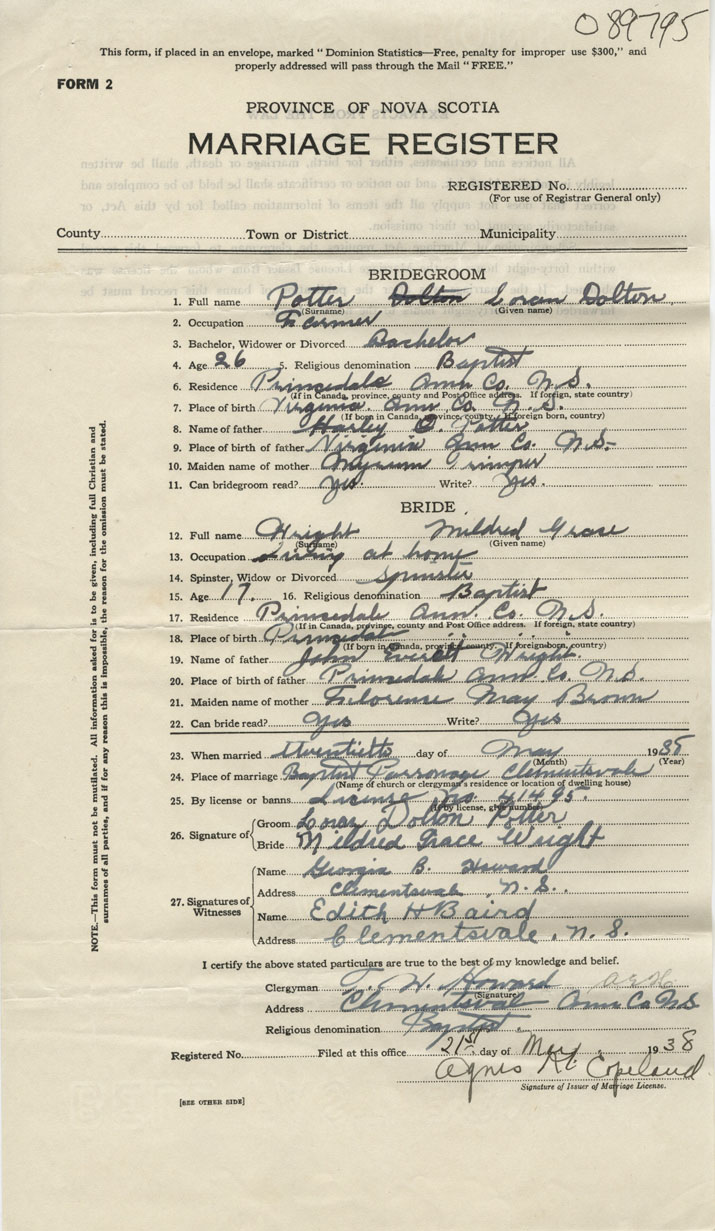 089795
This form, if placed in an envelope, marked "Dominion Statistics—Free, penalty for improper use $300," and
properly addressed will pass through the Mail "FREE."
FORM 2
PROVINCE OF NOVA SCOTIA
MARRIAGE REGISTER
REGISTERED No.
(For use of Registrar General only)
County Town or District Municipality
BRIDEGROOM
1. Full name Potter Dolton Loran Dolton
(Surname) (Given name)
2. Occupation Farmer
3. Bachelor, Widower or Divorced Bachelor
4. Age 26 5. Religious denomination Baptist
6. Residence Princedale Ann Co. N.S.
(If in Canada, province, county and Post Office address. If foreign, state country)
7. Place of birth Virginia Ann Co. N.S.
(If born in Canada, province, county. If foreign born, country)
8. Name of father Harley Potter
9. Place of birth of father Virginia Ann Co. N.S.
10. Maiden name of mother
11. Can bridegroom read? Yes. Write? Yes.
BRIDE
12. Full name Wright Mildred Grace
(Surname) (Given name)
13. Occupation Living at home
14. Spinster, Widow or Divorced Spinster
15. Age 17. 16. Religious denomination Baptist
17. Residence Princedale Ann. Co. N.S.
(If in Canada, province, county and Post Office address. If foreign, state country)
18. Place of birth Princedale " " "
(If born in Canada, province, county. If foreign born, country)
19. Name of father John Everett Wright.
20. Place of birth of father Princedale Ann Co N.S.
21. Maiden name of mother Florense May Brown
22. Can bride read? Yes Write? Yes
23. When married twentieth day of May 1938
(Month) (Year)
24. Place of marriage Baptist Parsonage Clementsvale
(Name of church or clergyman's residence or location of dwelling house)
25. By license or banns License No.
(If by license, give number)
26. Signature of Groom Loran Dolton Potter
Bride Mildred Grace Wright
27. Signatures of Witnesses
Name Georgia B. Howard
Address Clementsvale, N.S.
Name Edith H Baird
Address Clementsvale, N.S.
I certify the above stated particulars are true to the best of my knowledge and belief.
Clergyman T. W. Howard
(Signature)
Address Clementsvale Anna Co N.S
Religious denomination Baptist.
Registered No. Filed at this office 21st day of May 1938
Agnes Copeland
Signature of Issuer of Marriage License.
[SEE OTHER SIDE]
NOTE.—This form must not be mutilated. All information asked for is to be given, including full Christian and
surnames of all parties, and if for any reason this is impossible, the reason for the omission must be stated.